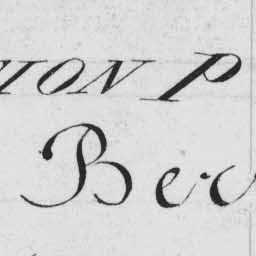 ION P
Ber